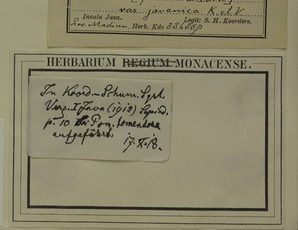 var. javanica K. et V.
Insula Java. Legit: S. H. Koorders.
Herb. Kds
HERBARIUM REGIUM MONACENSE.
In Koord.-Schum. Syst.
Verz. I Java (1912)
p. 10 Pom. tomentosa
aufgeführt
17. X. 18.